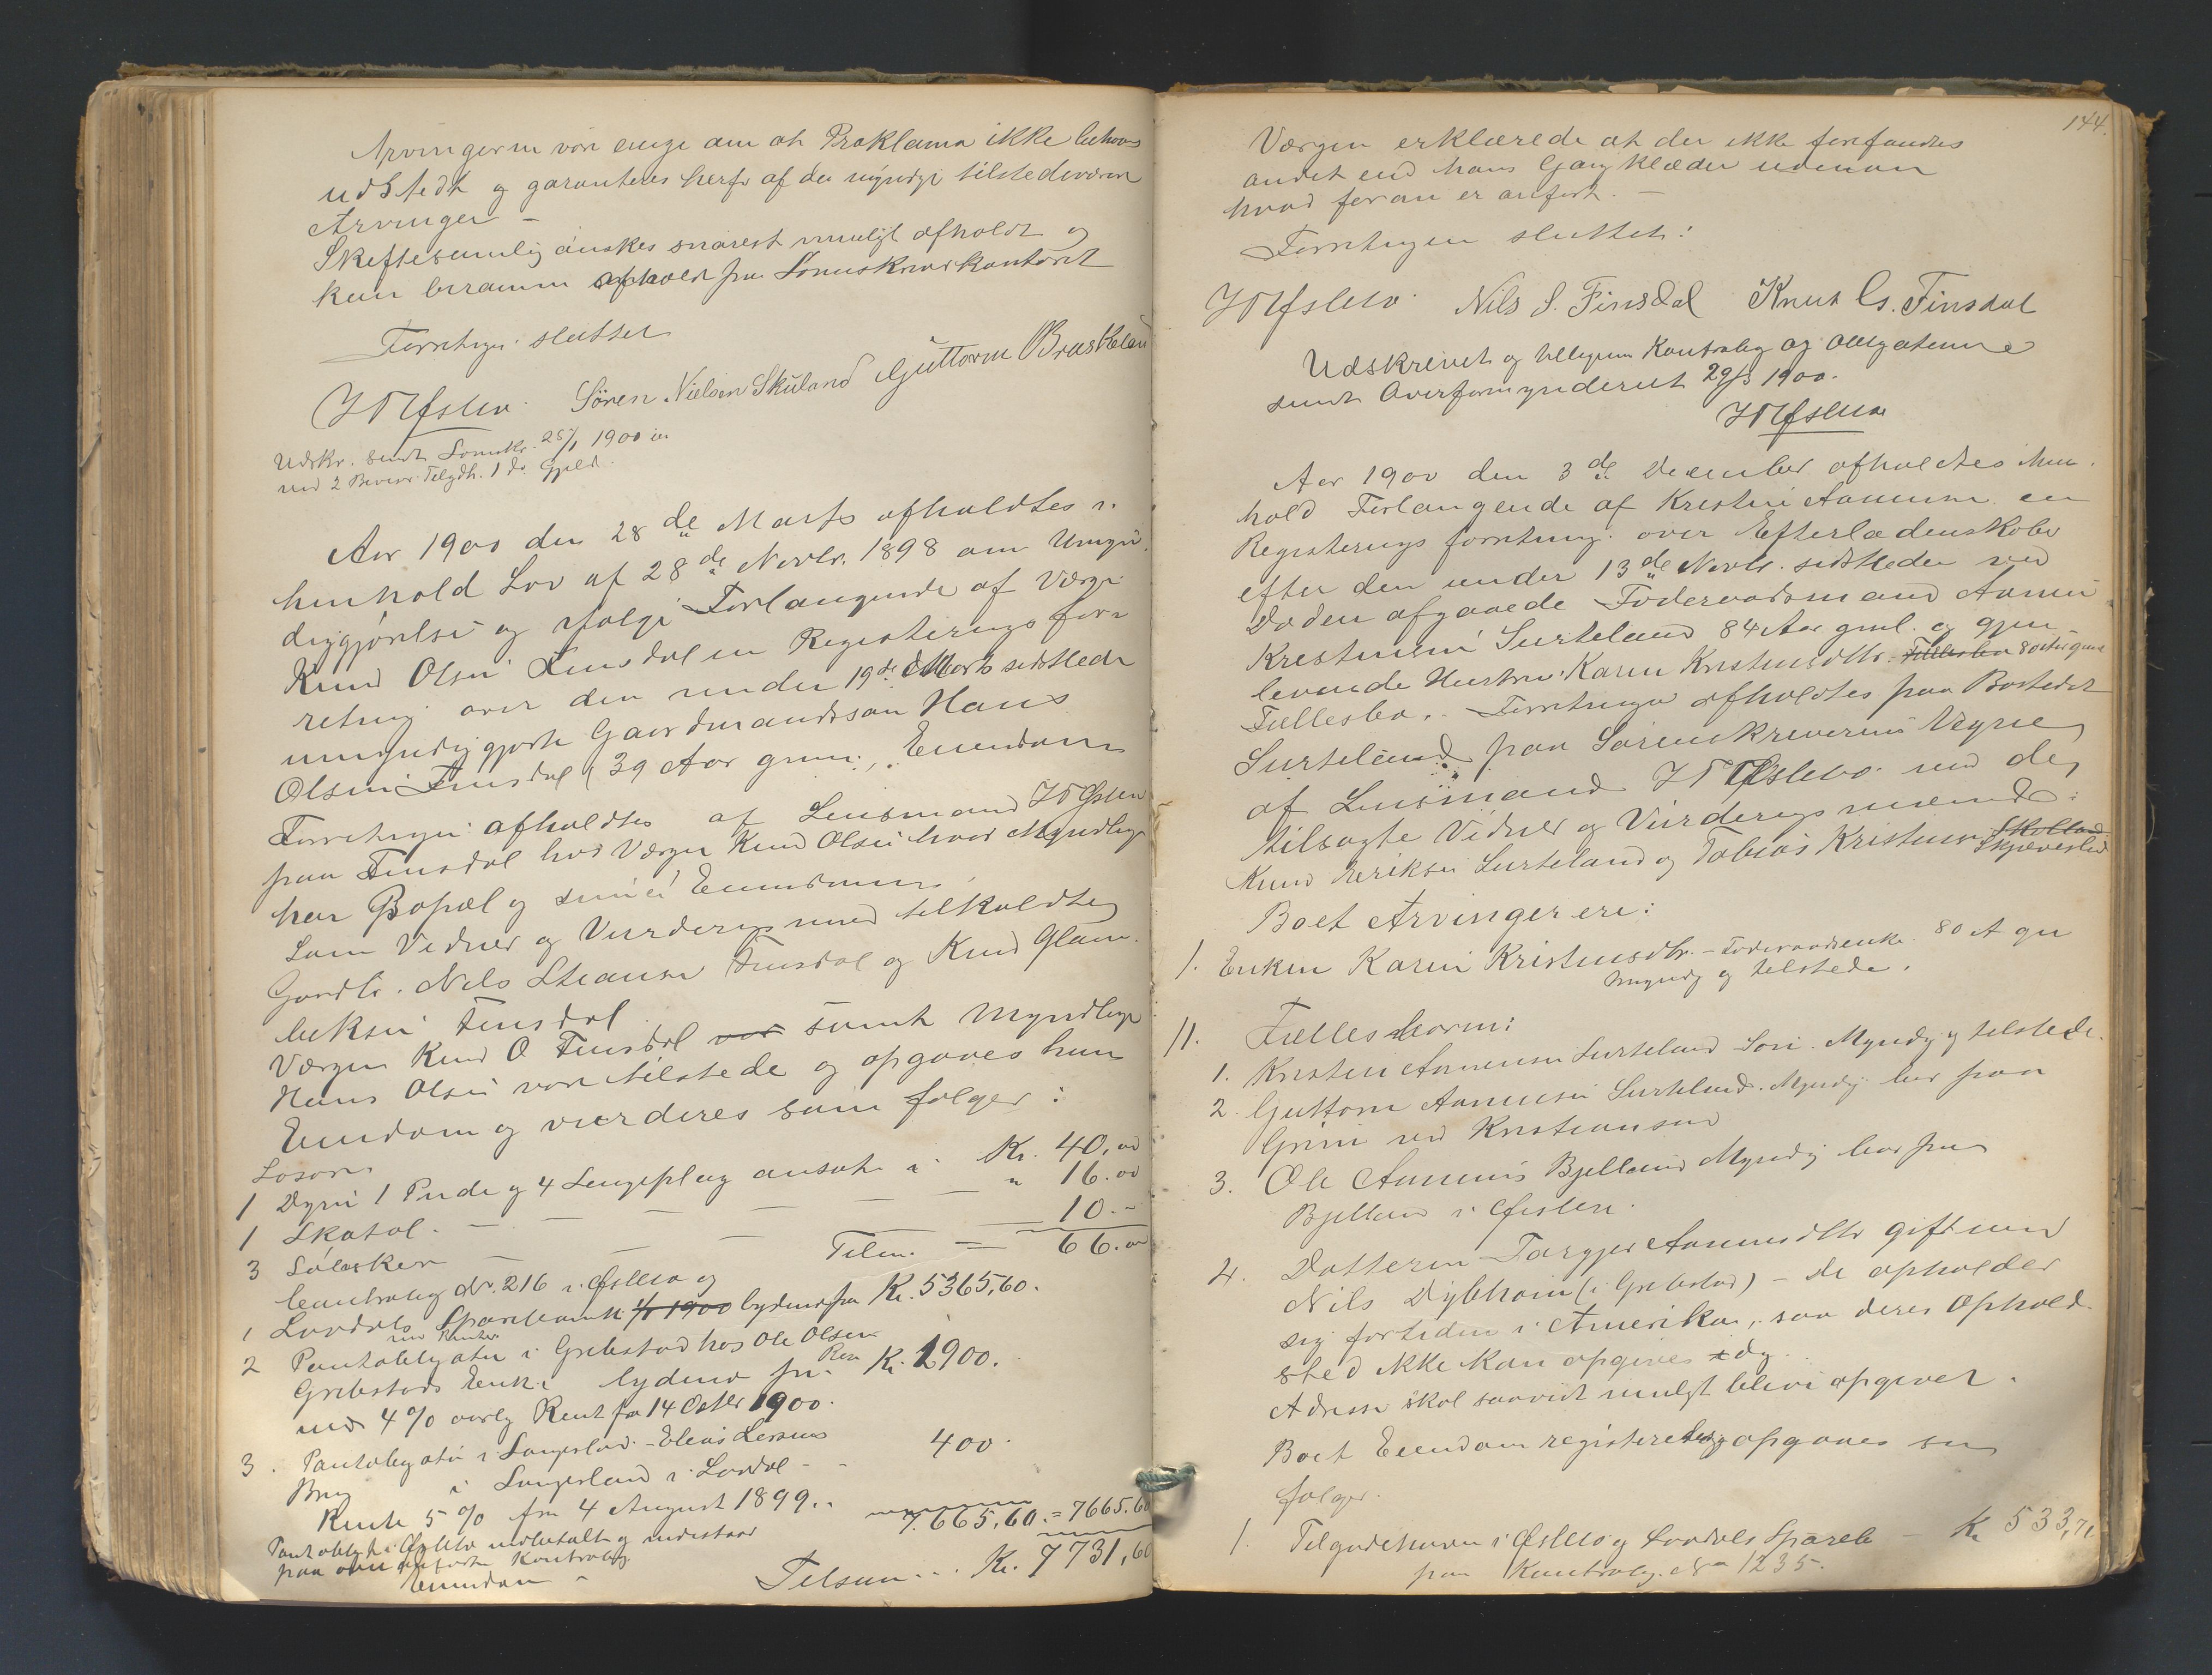 Arvingerne vare enige om at Proklama ikke behøves
udstedt og garanteres herfor af de myndige tilstedeværende
Arvinger –
Skiftesamling ønskes snarest muligt afholdt og
kan berammes afholdt paa Sorenskriverkontoret
Forretningen sluttet
Søren Nielsen Skuland Guttorm Braskeland
Udskr. sendt Sorenskr. 25/1 1900
med 2 Beviser Tilgdh. 1 do Gjeld.
Aar 1900 den 28de Marts afholdtes i
henhold Lov af 28de Novbr. 1898 om Umyn
diggjørelse og ifølge Forlangende af Værge
Knud Olsen Finsdal en Registeringsfor-
retning over den under 19de Marts sidstleden
umyndiggjorte Gaardmandssøn Hans
Olsen Finsdal (39 Aar gml.) Eiendom
Forretningen afholdtes af Lensmand
paa Finsdal hos Værgen Knud Olsen hvor Myndlingen
har Bopæl og sine Eiendomme
Som Vidner og Vurderingsmænd tilkaldtes
Gaardbr. Nils Steansen Finsdal og Knud Glam-
beksen Finsdal
Værgen Knud O Finsdal var samt Myndlingen
Hans Olsen vare tilstede og opgaves hans
Eiendom og vurderes som følger:
Løsøre
1 Dyne 1 Pude og 4 Sengeplag ansat i Kr. 40,00
1 Skatol – – – – " 16.00
3 Sølvskeer – – – 10.–
Tilsm. – 66.00
1 Kontrabog No. 216 i Øslebø og
Laudals Sparebank 1/1 1900 lydende paa Kr. 5365,60.
med Renter
2 Pantobligation i Grebstad hos Ole Olsen
Grebstads Enke lydende paa Rest Kr. 1900.
med 4% aarlig Rente fra 14 Octbr 1900.
3. Pantobligation i Langeland – Elias
Brug i Langeland i Laudal – 400.
Rente 5% fra 4 August 1899..
7.665,60. = 7665.60
Pantobligt. i Øslebø indbetalt og indestaar
paa oven anførte Kontrabog
Eiendom – Tilsam... Kr. 7731,60
144.
Værgen erklærede at der ikke forefandtes
andet end hans Gangklæder udenom
hvad foran er anført. –
Forretningen sluttet:
Nils S. Finsdal Knut Gs. Finsdal
Udskrevet og tilligemed Kontrabog og Obligationerne
sendt Overformynderiet 29/3 1900.
Aar 1900 den 3de December afholdtes i hen-
hold Forlangende af Kristen Aanensen en
Registeringsforretning over Efterladenskaber
efter den under 13de Novbr. sidstleden ved
Døden afgaaede Føderaadsmand Aanen
Kristensen Surteland 84 Aar gml. og gjen-
levende Hustru Karen Kristensdtr. Fællesbo 80 Aar gml
Fællesbo. Forretningen afholdtes paa Bostedet
Surteland paa Sorenskriverens Vegne
af Lensmand med de
tilsagte Vidner og Vurderingsmænd:
Knud Eriksen Surteland og Tobias Kristensen Skolland Skjævesland
Boets Arvinger ere:
1. Enken Karen Kristensdtr. – Føderaadsenke 80 A gml
Myndig og tilstede.
11. Fællesbørn:
1. Kristen Aanensen Surteland – Søn. Myndig og tilstede.
2. Guttorm Aanensen Surteland. Myndig bor paa
Grim ved Kristiansand
3. Ole Aanensens Bjelland Myndig bor paa
Bjelland i Øislebø.
4. Datteren Torgjer Aanensdtr gift med
Nils Dybhavn (i Grebstad) – De opholder
sig fortiden i Amerika, saa deres Ophold-
sted ikke kan opgives idag.
Adresse skal saavidt muligt blive opgivet.
Boets Eiendom registeredes og opgaves som
følger.
1. Tilgodehaven i Øslebø og Laudals Spareb – Kr 533,71
paa Kontrabog No 1235.